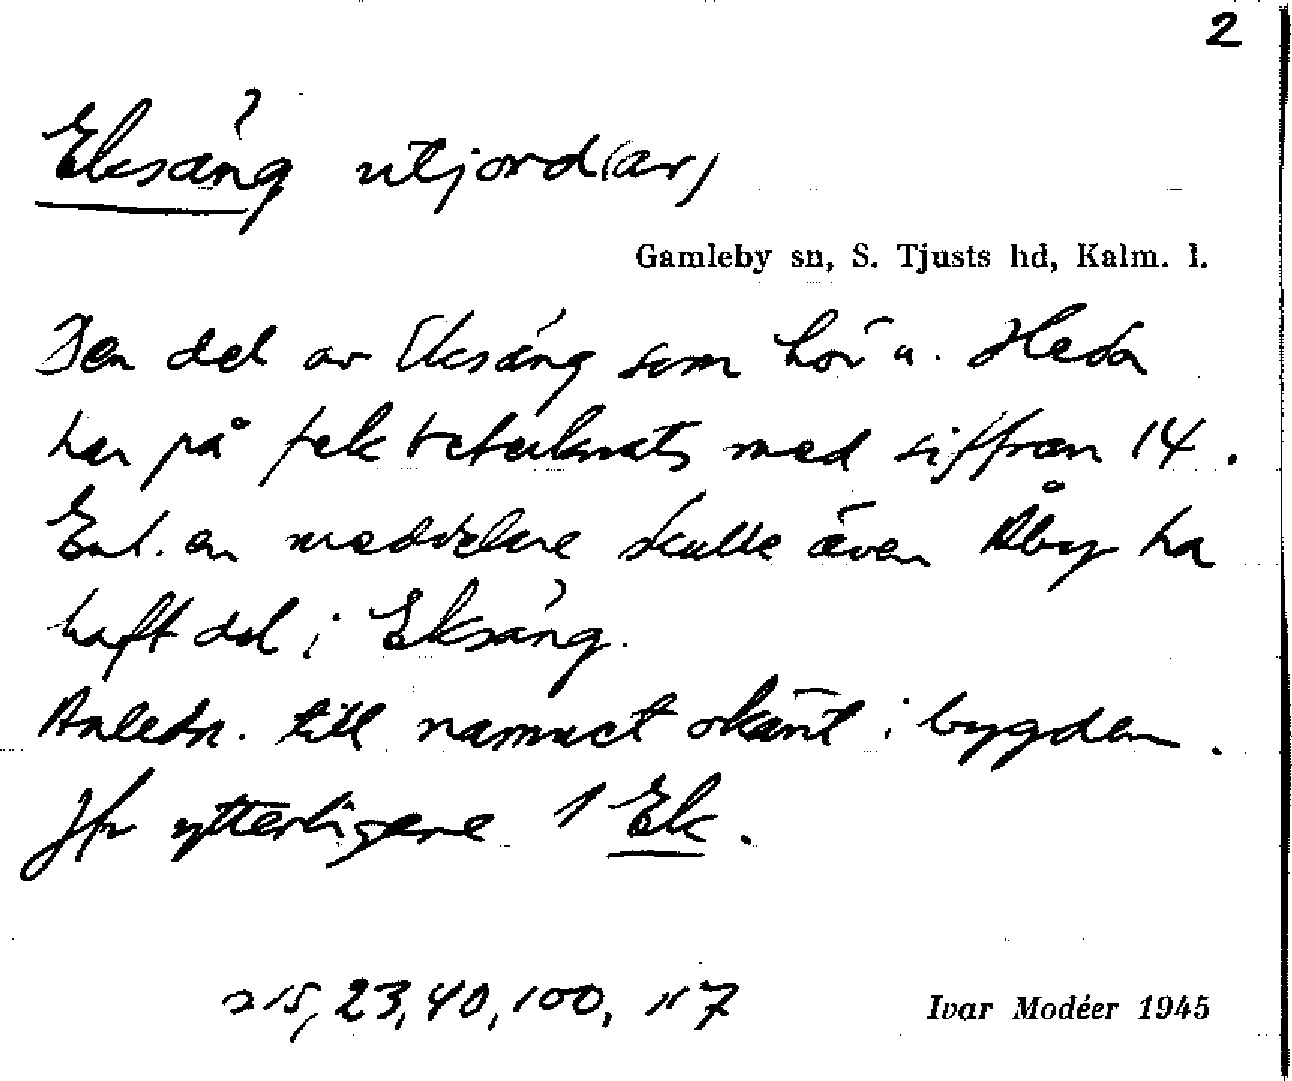 2
Eksäng utjord(ar)
Gamleby sn, S. Tjusts hd, Kalm. l.
Den del av Eksäng som hör u. Heda
har på tek betecknats med siffran 14.
Enl. en meddelare skulle även Åby ha
haft del i Eksäng.
Anledn. till namnet okänt i bygden.
Jfr ytterligare 1 Ek.
215, 23, 40, 100, 117
Ivar Modéer 1945